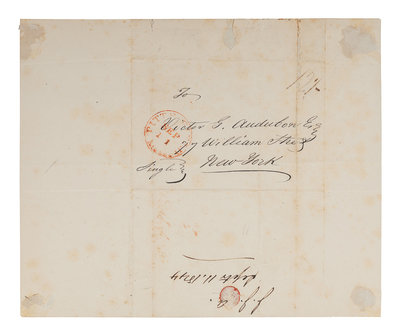 To
Victor G. Audubon Esq
77 William Street
New York
Single
SEP
11
J. J. A.
Septr 11. 1844